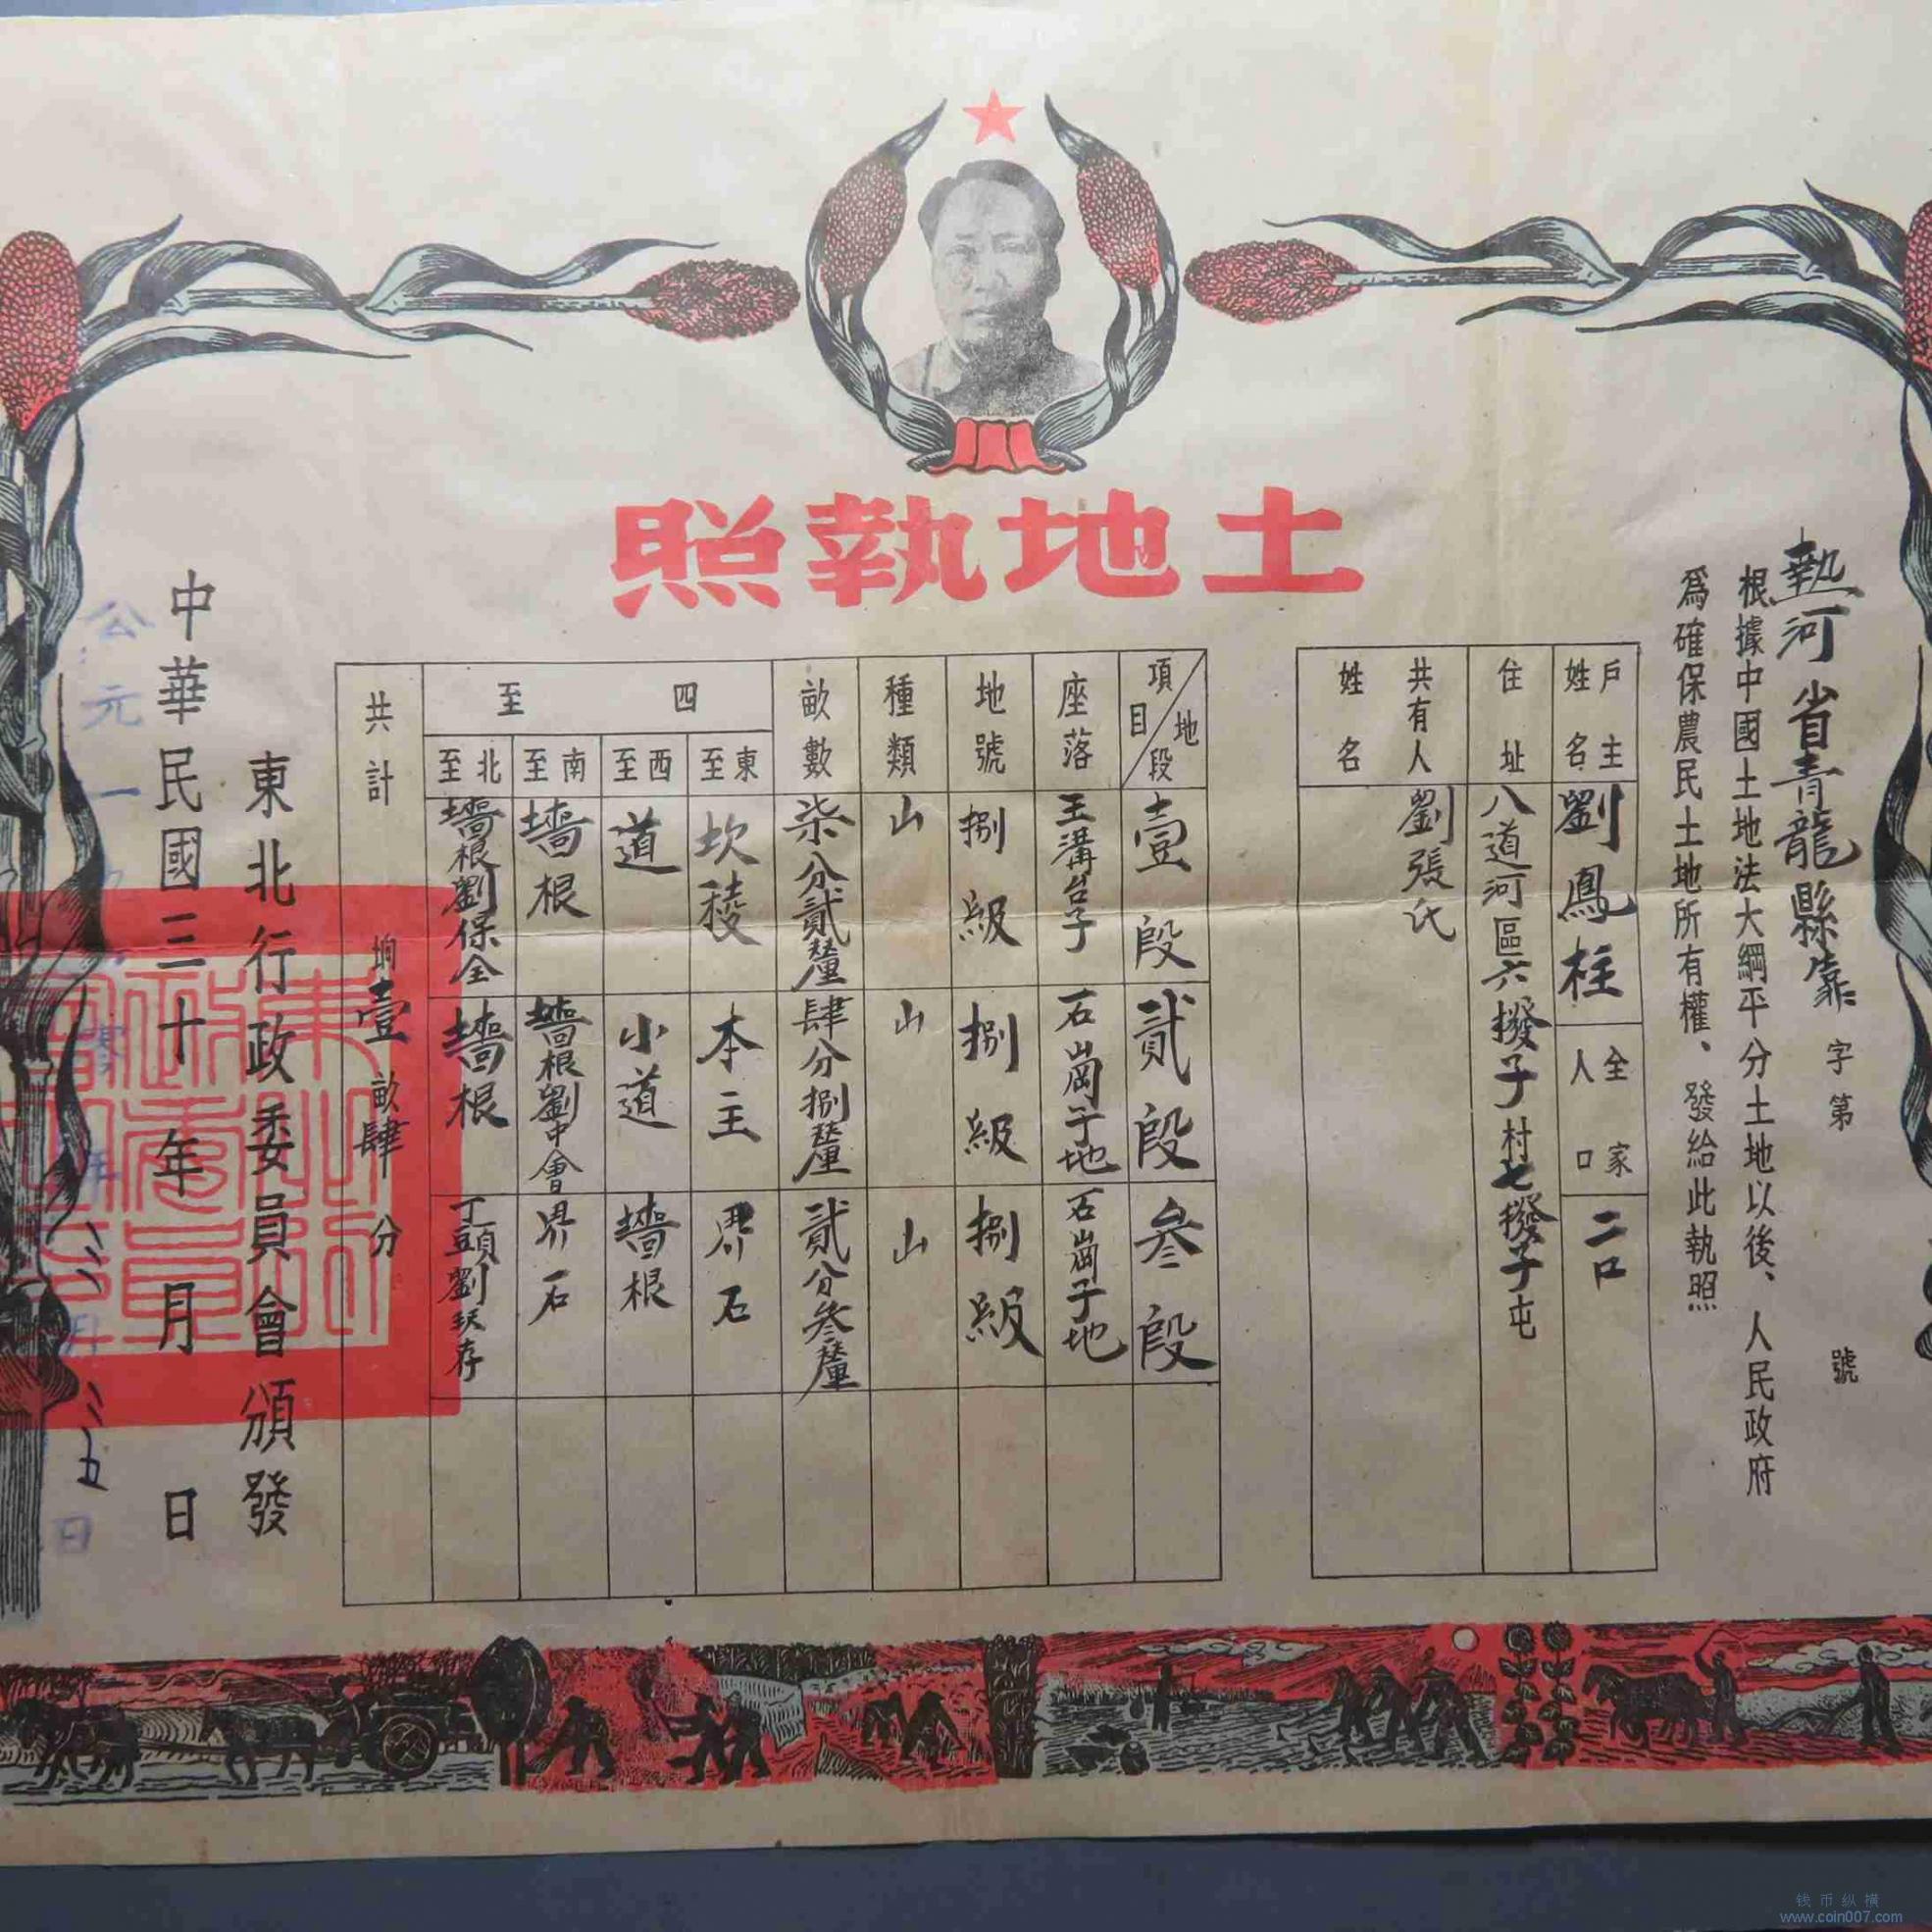 土地執照
熱河省青龍縣靠字第 號
根據中國土地法大綱平分土地以後、人民政府
為確保農民土地所有權、發給此執照
戶主姓名 劉鳳柱 全家人口 二口
住址 八道河區六撥子村七撥子屯
共有人姓名 劉張氏
項目 地段 壹段 貳段 叁段
座落 王溝台子 石崗子地 石崗子地
地號 捌級 捌級 捌級
種類 山 山 山
畝數 柒分貳釐 肆分捌釐 貳分叁釐
四至
東至 坎稜 本主 界石
西至 道 小道 墻根
南至 墻根 墻根劉中會 界石
北至 墻根劉保全 墻根 丁頭劉 存
共計 垧壹畝肆分
東北行政委員會頒發
中華民國三十 年 月 日
公元一九 年 月 五日
钱币纵横
www.coin007.com